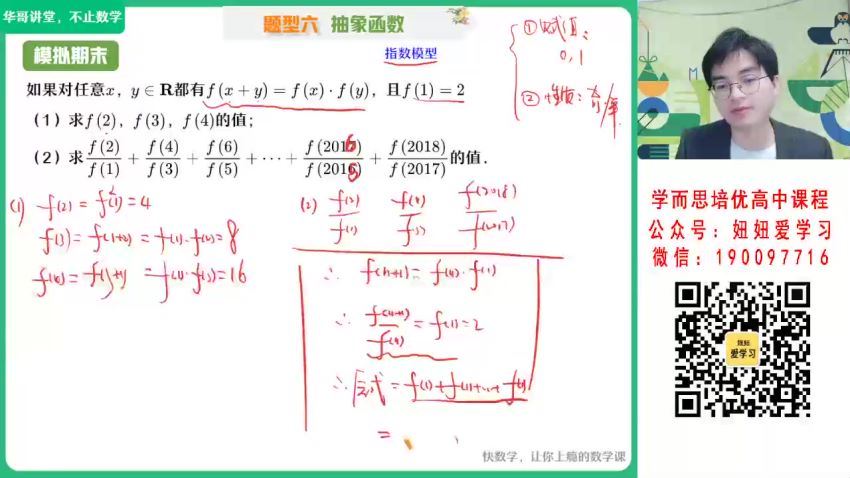 华哥讲堂，不止数学
题型六 抽象函数
模拟期末
指数模型
如果对任意x，y∈R都有f(x+y)=f(x)·f(y)，且f(1)=2
（1）求f(2)，f(3)，f(4)的值；
（2）求f(2)/f(1)+f(4)/f(3)+f(6)/f(5)+···+f(2016)/f(2015)+f(2018)/f(2017)的值．
① 赋值：
0,1
② 性质：奇/单
(1) f(2)=f²(1)=4
f(3)=f(1+2)=f(1)·f(2)=8
=f(1)·f(3)=16
(2) f(2)/f(1) f(4)/f(3) f(2018)/f(2017)
∴ f(n+1)=f(n)·f(1)
∴ f(n+1)/f(n)=f(1)=2
∴ 原式=f(1)+f(1)+…+f(1)
=
快数学，让你上瘾的数学课
学而思培优高中课程
公众号：妞妞爱学习
微信：190097716
妞妞
爱学习